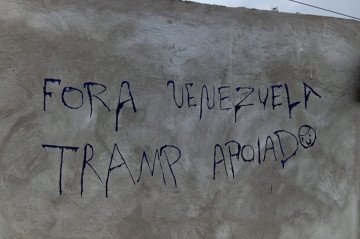 FORA VENEZUELA
TRAMP APOIADO